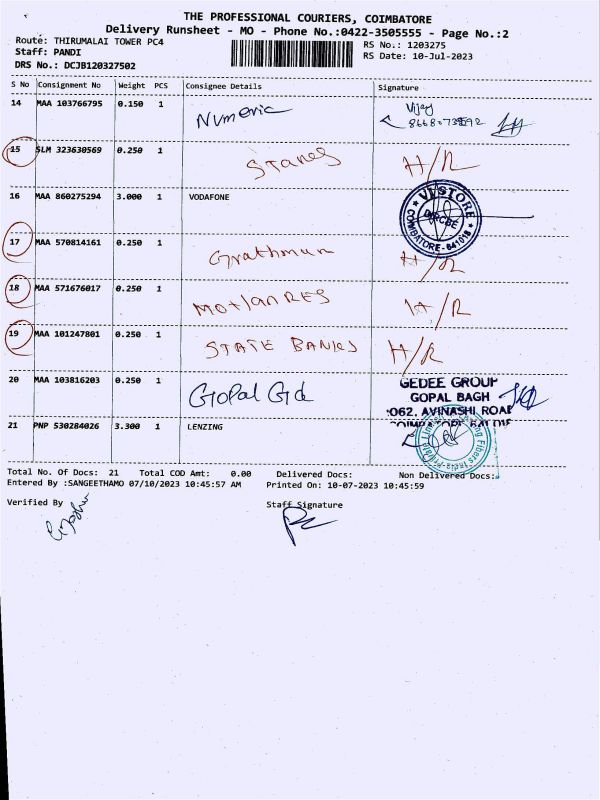 THE PROFESSIONAL COURIERS, COIMBATORE
Delivery Runsheet - MO - Phone No.:0422-3505555 - Page No.:2
Route: THIRUMALAI TOWER PC4 RS No.: 1203275
Staff: PANDI RS Date: 10-Jul-2023
DRS No.: DCJB120327502
S No Consignment No Weight PCS Consignee Details Signature
14 MAA 103766795 0.150 1 Numeric Vijay
15 SLM 323630569 0.250 1 Stanes H/R
16 MAA 860275294 3.000 1 VODAFONE VI STORE COIMBATORE - 641018
17 MAA 570814161 0.250 1 H/R
18 MAA 571676017 0.250 1 H/R
19 MAA 101247801 0.250 1 STATE BANKS H/R
20 MAA 103816203 0.250 1 Gopal GEDEE GROUP
GOPAL BAGH
062, AVINASHI ROAD
21 PNP 530284026 3.300 1 LENZING
Total No. Of Docs: 21 Total COD Amt: 0.00 Delivered Docs: Non Delivered Docs:
Entered By :SANGEETHAMO 07/10/2023 10:45:57 AM Printed On: 10-07-2023 10:45:59
Verified By Staff Signature